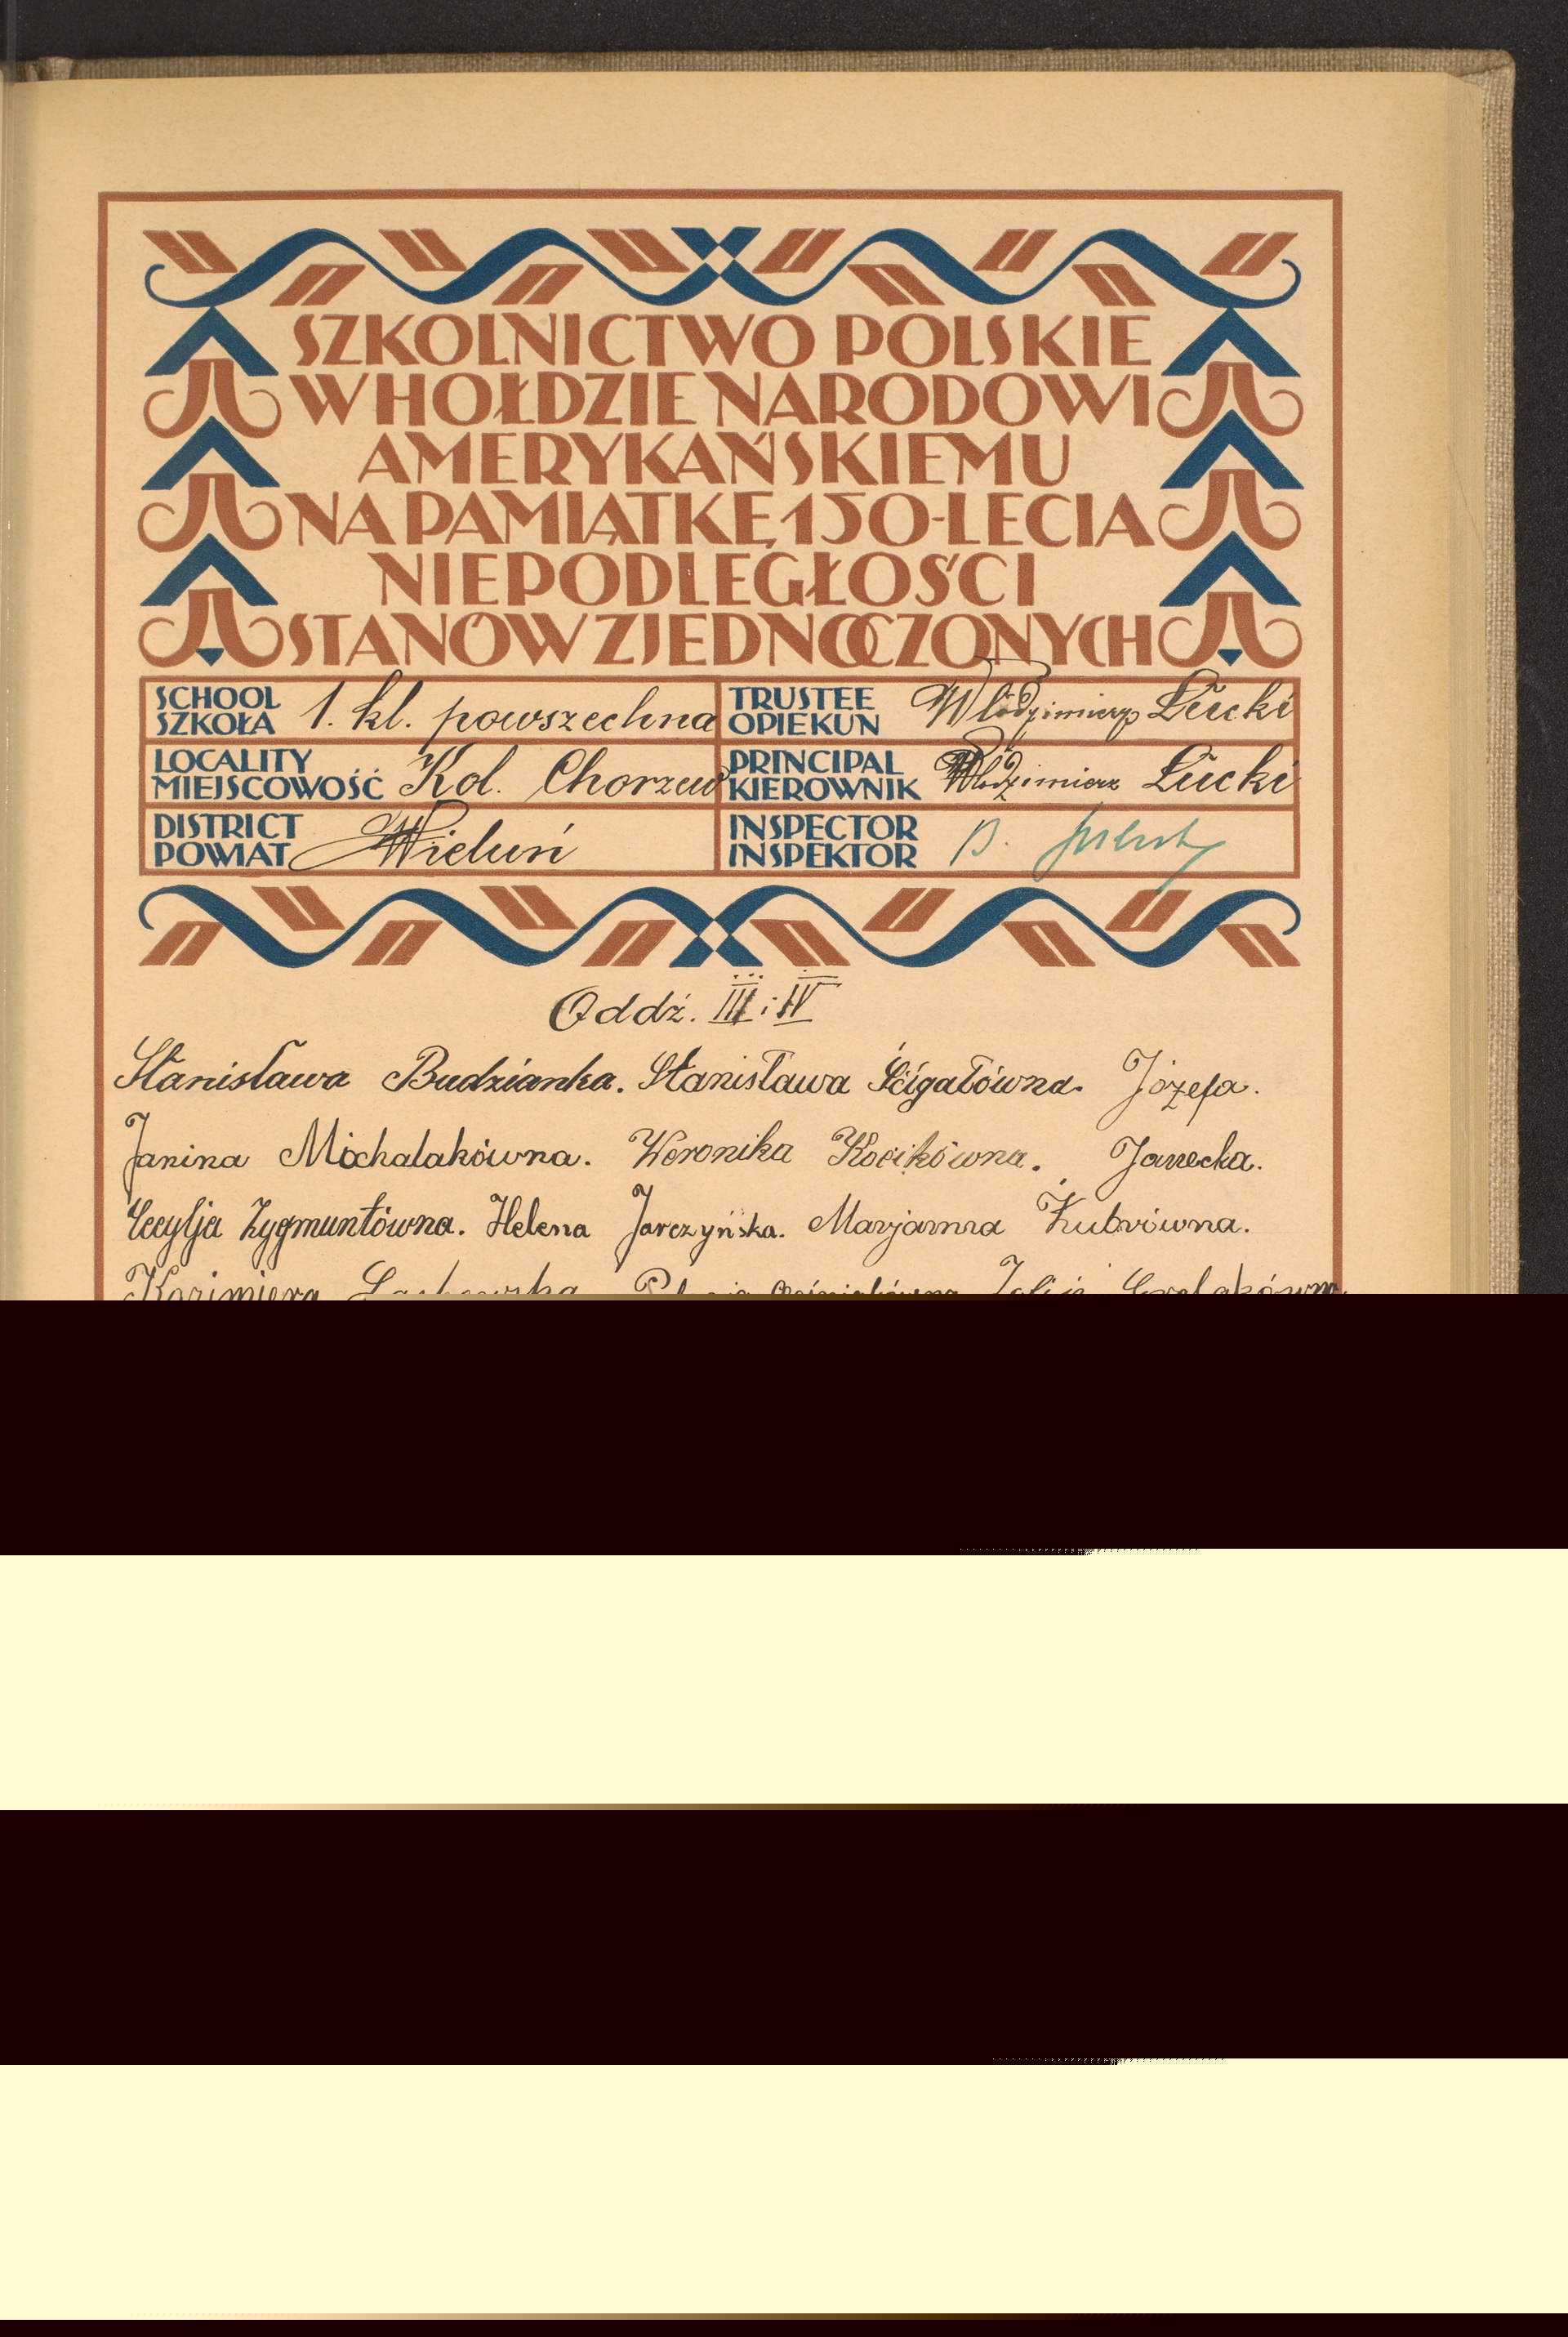 SZKOLNICTWO POLSKIE
W HOŁDZIE NARODOWI
AMERYKAŃSKIEMU
NA PAMIĄTKĘ 150-LECIA
NIEPODLEGŁOŚCI
STANÓW ZJEDNOCZONYCH
SCHOOL
SZKOŁA 1. kl. powszechna
TRUSTEE
OPIEKUN Włodzimierz Łucki
LOCALITY
MIEJSCOWOŚĆ Kol. Chorzew
PRINCIPAL
KIEROWNIK Włodzimierz Łucki
DISTRICT
POWIAT Wieluń
INSPECTOR
INSPEKTOR B.
Oddź. III i IV
Stanisława Budzianka. Stanisława Ścigałówna. Józefa.
Janina Michalakówna. Weronika Kocikówna. Janecka.
Cecylja Zygmuntówna. Helena Jarczyńska. Marjanna Żubrówna.
Kazimiera